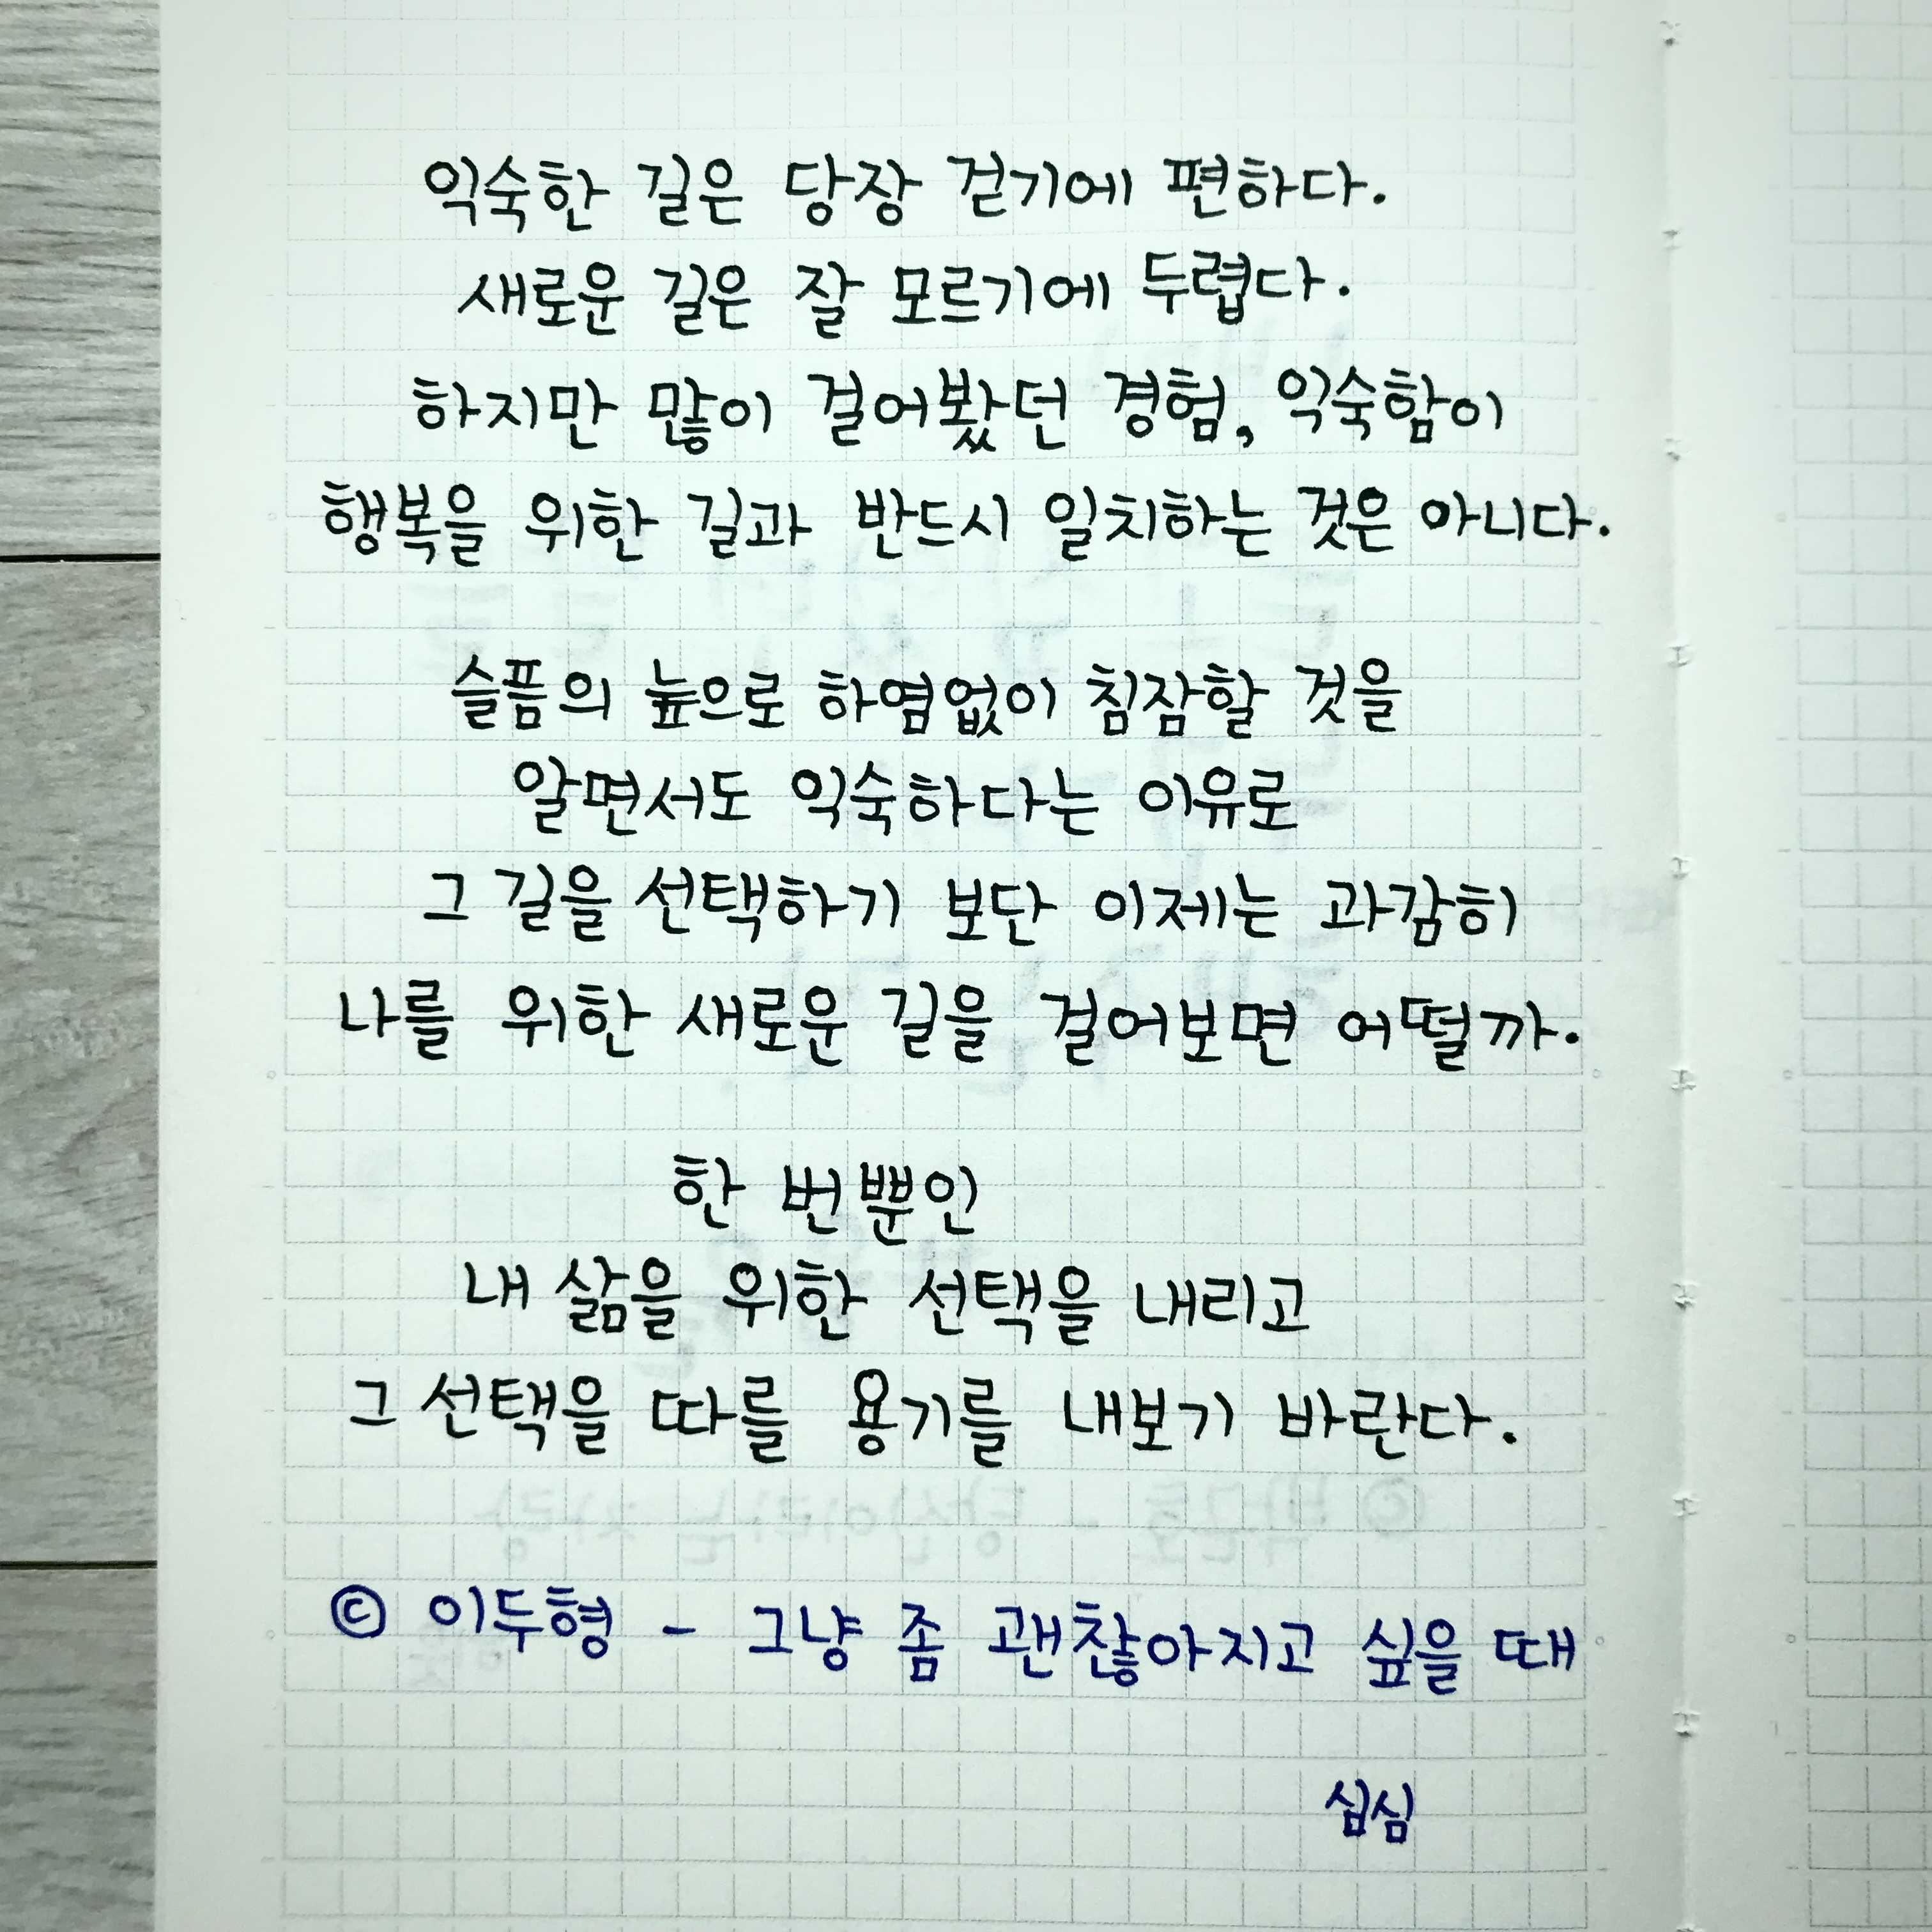 익숙한 길은 당장 걷기에 편하다.
새로운 길은 잘 모르기에 두렵다.
하지만 많이 걸어봤던 경험, 익숙함이
행복을 위한 길과 반드시 일치하는 것은 아니다.
슬픔의 늪으로 하염없이 침잠할 것을
알면서도 익숙하다는 이유로
그 길을 선택하기 보단 이제는 과감히
나를 위한 새로운 길을 걸어보면 어떨까.
한 번뿐인
내 삶을 위한 선택을 내리고
그 선택을 따를 용기를 내보기 바란다.
© 이두형 - 그냥 좀 괜찮아지고 싶을 때
심심